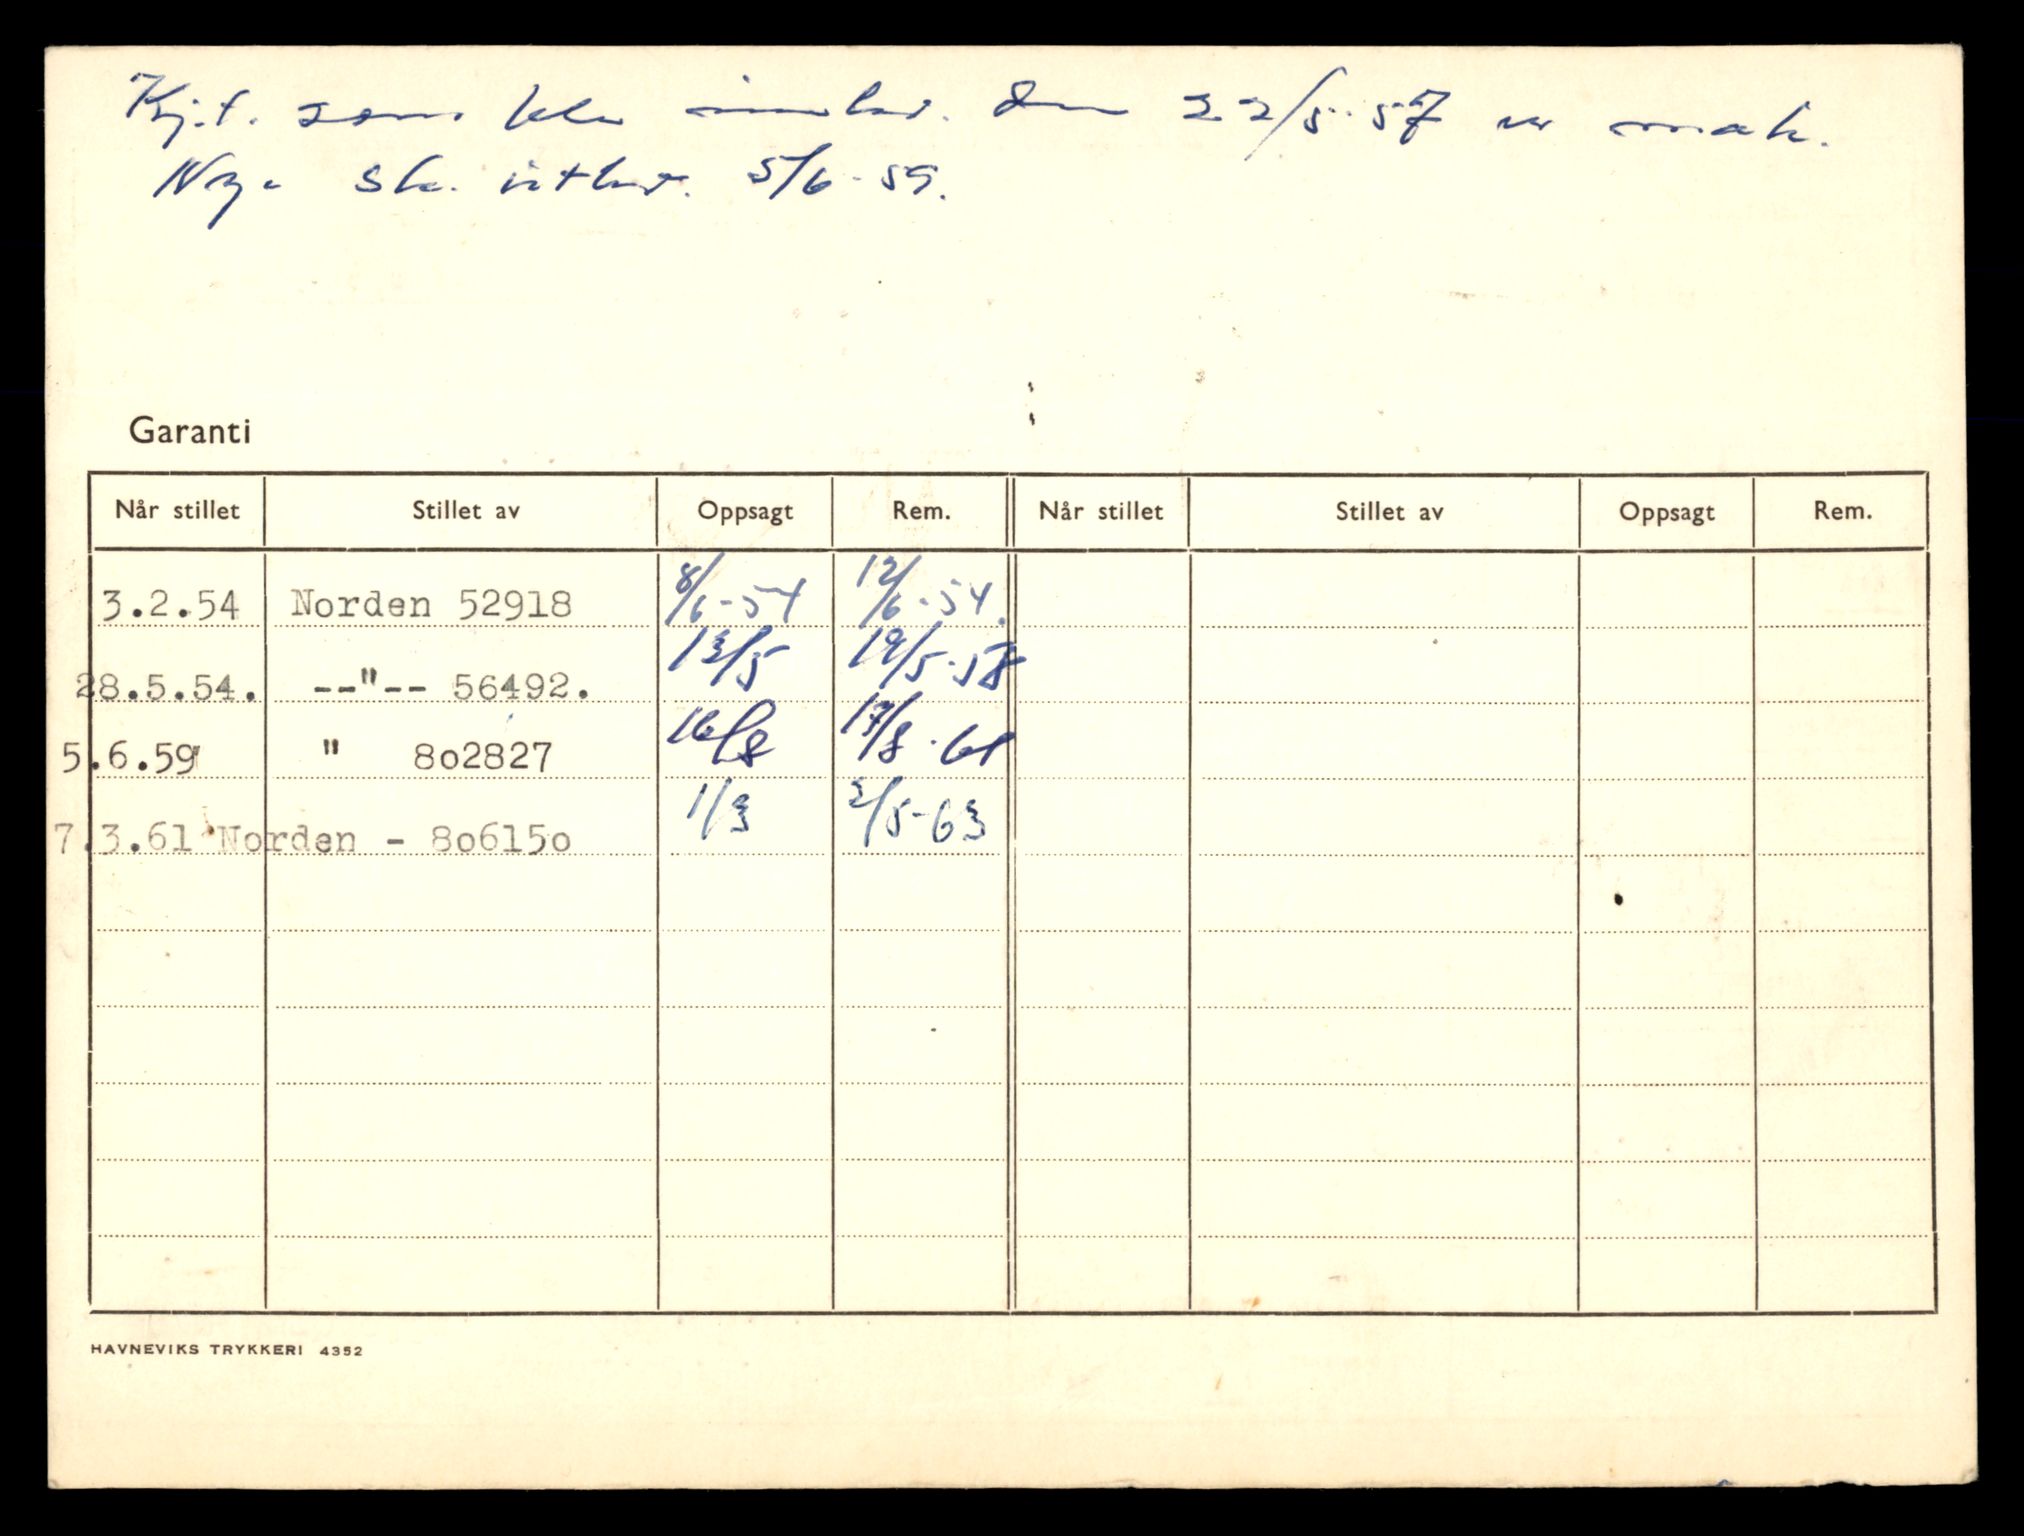 Kjt. som ble innlev. den 22/5-57 er mak.
Nye sk. utlev. 5/6-59.
Garanti
Når stillet Stillet av Oppsagt Rem. Når stillet Stillet av Oppsagt Rem.
3.2.54 Norden 52918 8/6-54 12/6-54.
28.5.54. --"-- 56492. 13/5 19/5-58
5.6.59 " 8o2827 16/8 17/8-61
7.3.61 Norden - 8o615o 1/3 2/5-63
HAVNEVIKS TRYKKERI 4352